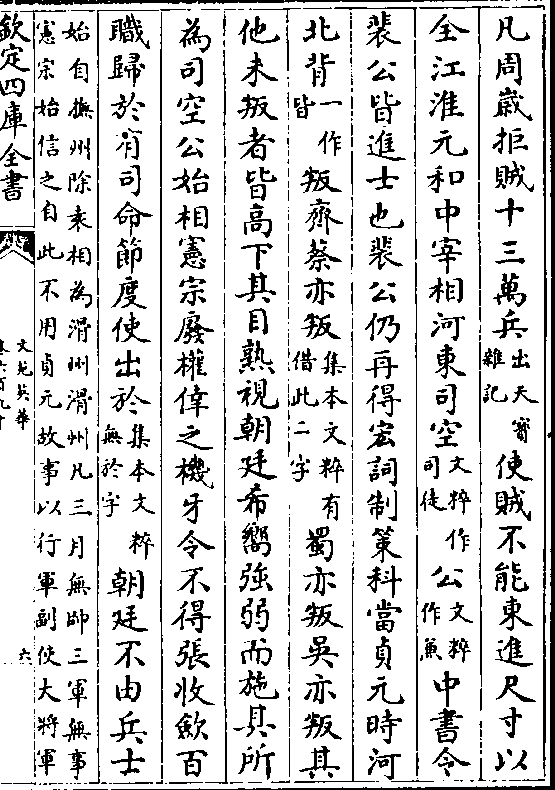 凡周歲拒賊十三萬兵出天寶雜記使賊不能東進尺寸以
全江淮元和中宰相河東司空文粹作司徒公文粹作兼中書令
裴公皆進士也裴公仍再得宏詞制策科當貞元時河
北背一作皆叛齊蔡亦叛集本文粹有借此二字蜀亦叛吳亦叛其
他未叛者皆高下其目熟視朝廷希嚮強弱而施其所
為司空公始相憲宗廢權倖之機牙令不得張收斂百
職歸於有司命節度使出於集本文粹無於字朝廷不由兵士
始自撫州除袁相為滑州滑州凡三月無帥三軍無事
憲宗始信之自此不用貞元故事以行軍副使大將軍
欽定四庫全書
文苑英華
六